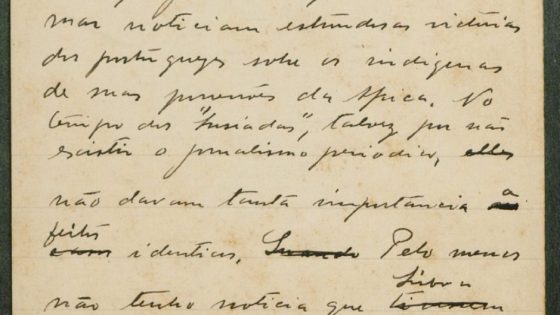 mas noticiam estrondosas victorias
dos portuguezes sobre os indigenas
de suas possessões da Africa. No
tempo dos "Lusiadas", talvez por não
existir o jornalismo periodico, elles
não davam tanta importancia a
feitos
identicos. Quando Pelo menos
Lisboa
não tenho noticia que tivessem